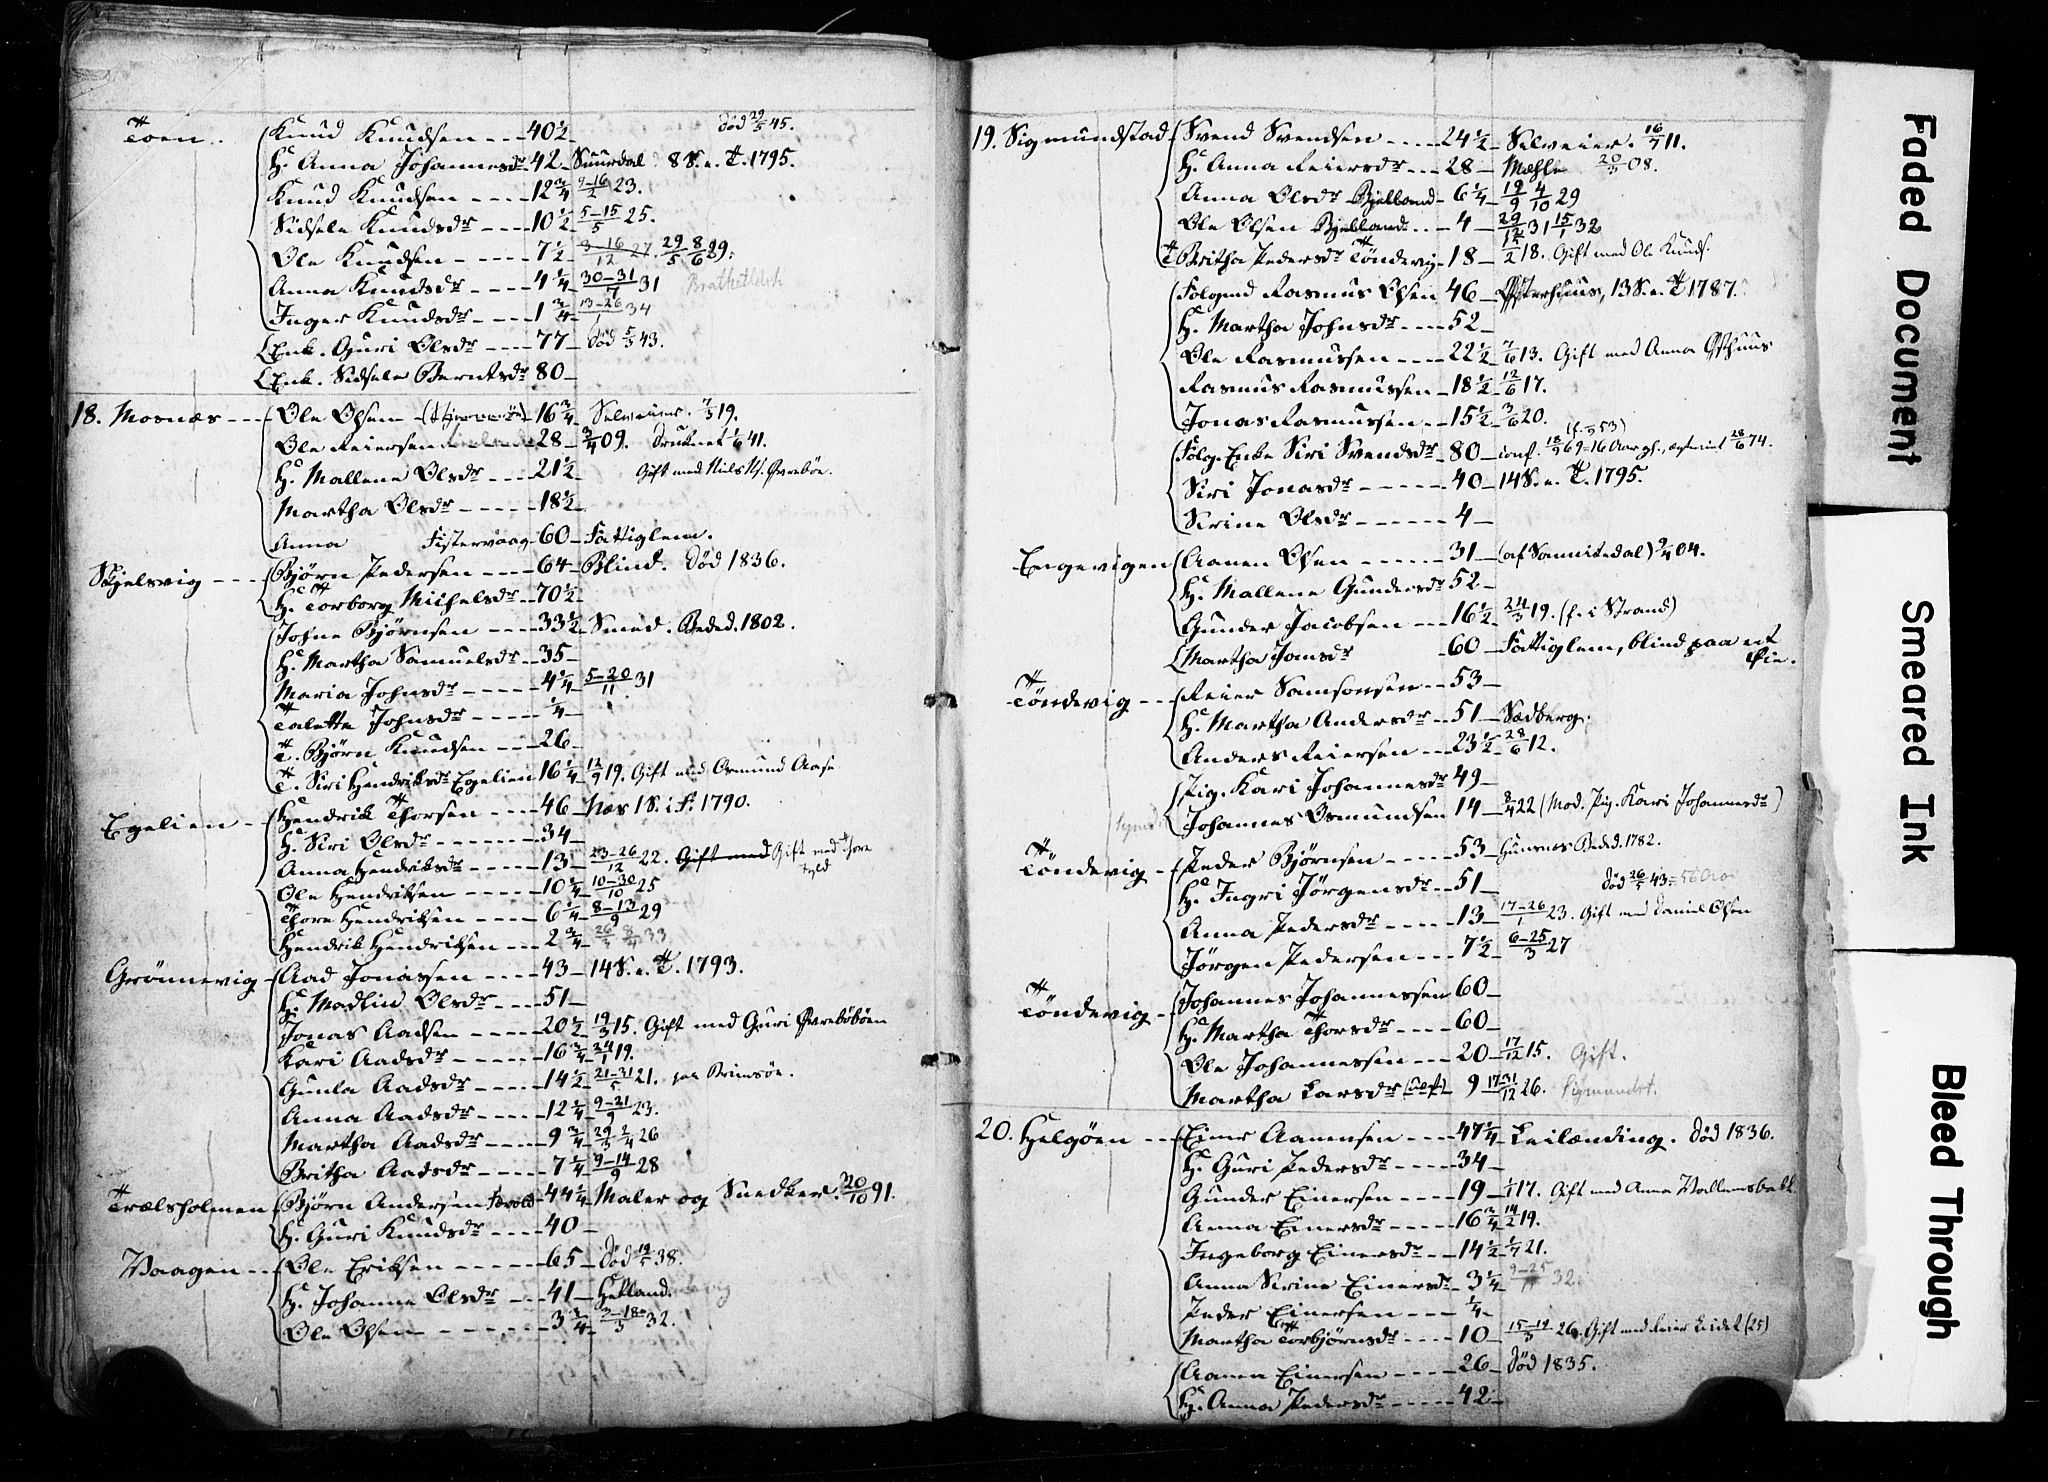 Toen. Knud Knudsen 40½ død 29/5 45.
H. Anna Johannesdr 42 Suurdal 8 S. e. T. 1795.
Knud Knudsen 12¾ 2-16/2 23.
Sidsele Knudsdr 10½ 5-15/5 25.
Ole Knudsen 7½ 3-16/12 27. 29/5 8/6 29.
Anna Knudsdr 4¼ 30-31/7 31
Inger Knudsdr 1¾ 13-26/1 34
Enk. Guri Olsdr 77 død 5/5 43.
Enk. Sidsele Berntsdr 80
18. Mosnæs Ole Olsen 16¾ Selveier. 7/5 19.
Ole Reiersen 28 3/4 09. Druknet 1/6 41.
H. Mallene Olsdr 21½ Gift med Niels Øvrebøe.
Martha Olsdr 18½
Anna Fistervaag 60 Fattiglem.
Skjelsvig Bjørn Pedersen 64 Blind. Død 1836.
H. Torborg Michelsdr 70½
Johne Bjørnsen 33½ Smed. Beded. 1802.
H. Martha Samuelsdr 35
Maria Johnsdr 4¼ 5-20/11 31
Talette Johnsdr ¼
T. Bjørn Knudsen 26
T. Siri Hendriksdr Egelien 16¼ 12/9 19. Gift med Osmund Aase
Egelien Hendrik Thorsen 46 Næs 1 S. i F. 1790.
H. Siri Olsdr 34
Anna Hendriksdr 13 23-26/12 22. Gift med Gift med Thore
Ole Hendriksen 10¼ 10-30/10 25
Thore Hendriksen 6¼ 8-13/9 29
Hendrik Hendriksen 2¾ 26/3 8/4 33
Grönnevig Aad Jonassen 43 14 S. e. T. 1793.
H. Madlin Olsdr 51
Jonas Aadsen 20½ 19/3 15. Gift med Guri Øvreböen
Kari Aadsdr 16¾ 24/1 19.
Gunla Aadsdr 14½ 21-31/5 21. paa Brimsöe.
Anna Aadsdr 12¼ 9-21/9 23.
Martha Aadsdr 9¾ 29/3 2/4 26
Britha Aadsdr 7¼ 9-14/9 28
Trælsholmen Bjørn Andersen 44¼ Maler og Snedker. 20/10 91.
H. Guri Knudsdr 40
Vaagen Ole Eriksen 65 Død 19/5 38.
H. Johanne Olsdr 41 Hetland.
Ole Olsen 3¾ 3-18/3 32.
19. Sigmundstad Svend Svendsen 24½ Selveier. 16/7 11.
H. Anna Reiersdr 28 Mæhle 20/3 08.
Anna Olsdr Bjelland 6¼ 19/9 4/10 29
Ole Olsen Bjelland 4 29/12 31 15/1 32
T Britha Pedersdr Töndevig 18 15/2 18. Gift med Ole Knuds.
Folgmd Rasmus Olsen 46 Østerhuus, 13 S. e. T 1787.
H. Martha Johnsdr 52
Ole Rasmussen 22½ 7/6 13. Gift med Anna Østhuus
Rasmus Rasmussen 18½ 12/6 17.
Jonas Rasmussen 15½ 3/6 20.
Folg. Enke Siri Svendsdr 80
Siri Jonasdr 40 14 S. e. T. 1795.
Serine Olsdr 4
Engevigen Aanen Olsen 31 (af Sannikedal) 9/4 04.
H. Mallene Gundersdr 52
Gunder Jacobsen 16½ 24/3 19. (f. i Strand)
Martha Jonsdr 60 Fattiglem, blind paa et
Øie.
Töndevig Reier Samsonsen 53
H. Martha Andersdr 51 Sædberg.
Anders Reiersen 23½ 28/6 12.
Pig. Kari Johannesdr 49
Johannes Osmundsen 14 8/4 22 (Mod. Pig. Kari Johannesdr)
Töndevig Peder Bjørnsen 53 Beded. 1782.
H. Ingri Jörgensdr 51 død 26/5 43 = 56 Aar
Anna Pedersdr 13 17-26/1 23. Gift med Daniel Olsen
Jörgen Pedersen 7½ 6-25/3 27
Töndevig Johannes Johannessen 60
H. Martha Thorsdr 60
Ole Johannessen 20 17/12 15. Gift.
Martha Larsdr 9 17-31/12 26. Sigmundst.
20. Helgöen Einer Aanensen 47¼ Leilænding. død 1836.
H. Guri Pedersdr 34
Gunder Einersen 19 1/1 17. Gift med Anna
Anna Einersdr 16¾ 14/2 19.
Ingeborg Einersdr 14½ 1/7 21.
Anna Serine Einersdr 3¼ 9-25 32.
Peder Einersen ¼
Martha Torbjörnsdr 10 15-19/3 26. Gift med Reier (25)
Aanen Einersen 26 Død 1835.
H. Anna Pedersdr 42
Faded Document
Smeared Ink
Bleed Through